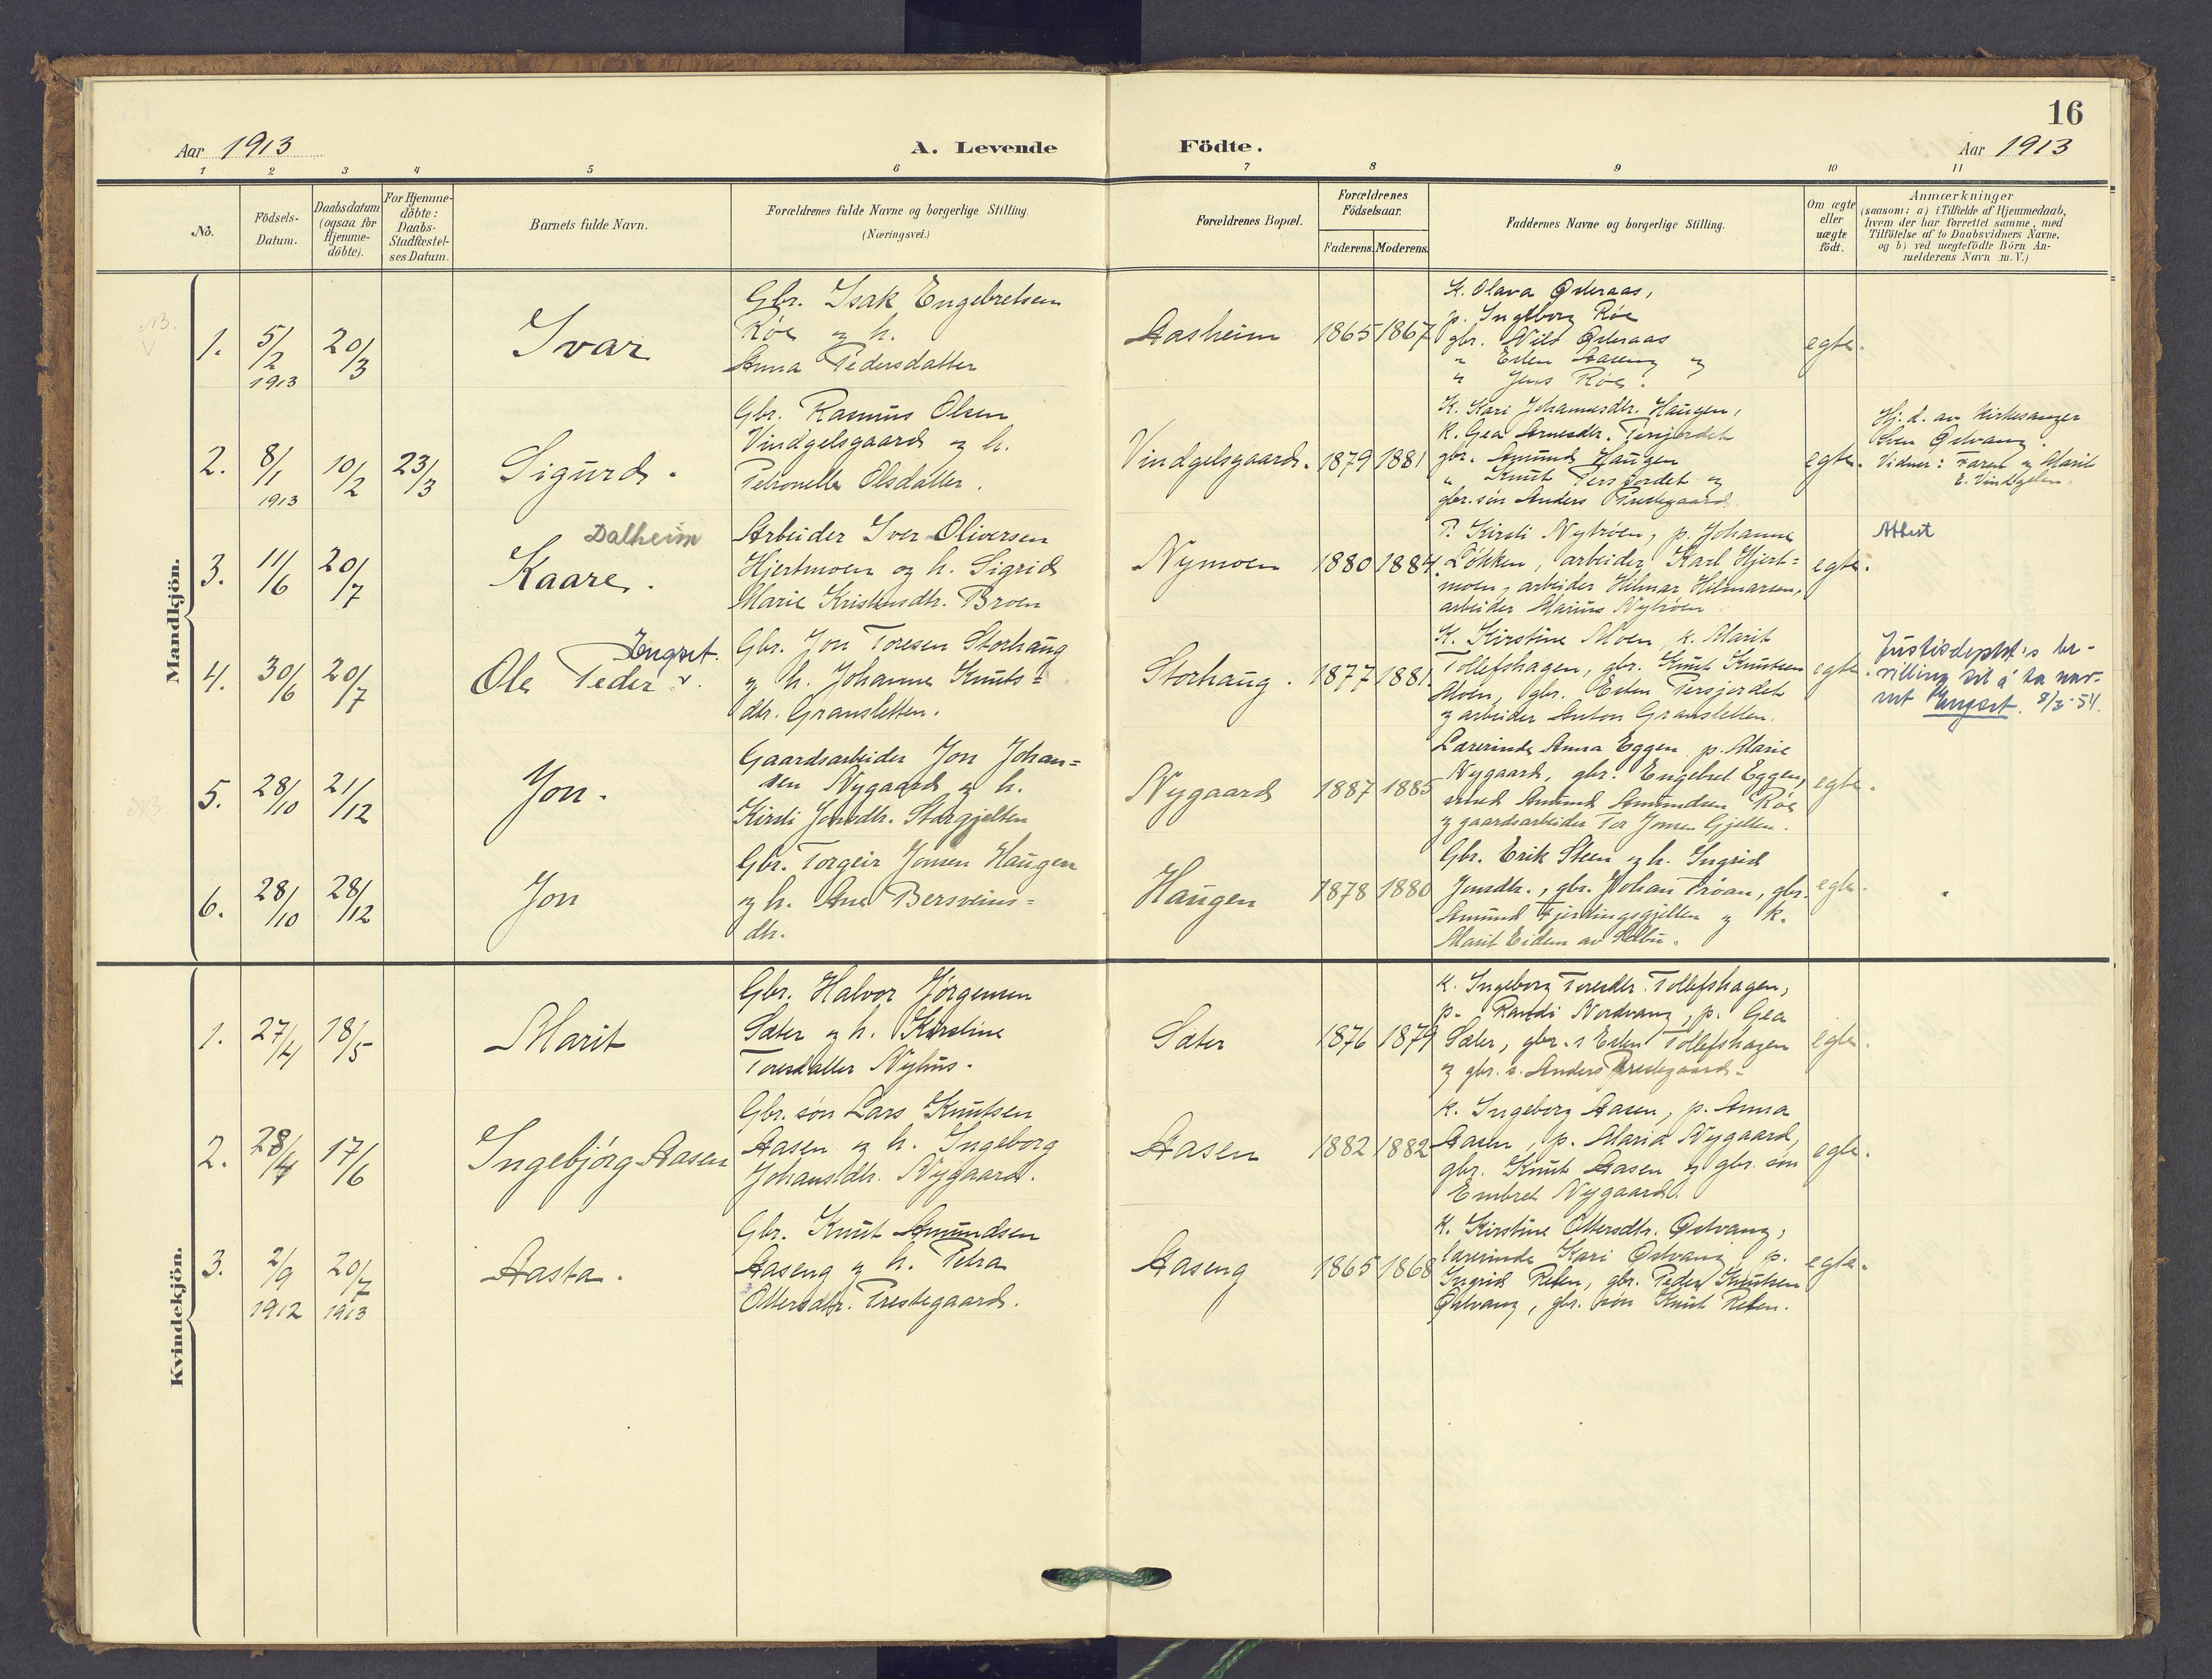 16
Aar 1913
A. Levende Födte.
Aar 1913
1 2 3 4 5 6 7 8 9 10 11
No.
Födsels-
Datum.
Daabsdatum
(ogsaa for
Hjemme-
döbte).
For Hjemme-
döbte:
Daabs-
Stadfæstel-
ses Datum.
Barnets fulde Navn.
Forældrenes fulde Navne og borgerlige Stilling.
(Næringsvei.)
Forældrenes Bopæl.
Forældrenes
Födselsaar.
Faderens.
Moderens.
Faddernes Navne og borgerlige Stilling.
Om ægte
eller
uægte
födt.
Anmærkninger
(saasom: a) i Tilfælde af Hjemmedaab,
hvem der har forrettet samme, med
Tilföielse af to Daabsvidners Navne,
og b) ved uægtefödte Börn An-
melderens Navn m. V.)
Mandkjön.
NB.
1.
5/2
1913
20/3
Ivar
Gbr. Isak Engebretsen
Röe og h.
Anna Pedersdatter
Aasheim
1865
1867
K. Olava Østeraas,
p. Ingeborg Röe
gbr. Nils Østeraas
" Esten Aaseng og
" Jens Röe.
egte.
2.
8/1
1913
10/2
23/3
Sigurd.
Gbr. Rasmus Olsen
Vindgelsgaard og h.
Petronelle Olsdatter.
Vindgelsgaard.
1879
1881
K. Kari Johannesdtr. Haugen,
k. Gea Arnesdtr. Persjordet
gbr. Amund Haugen
" Knut Persjordet og
gbr. sön Anders Prestegaard.
egte.
Hj. d. av kirkesanger
Sven Østvang.
Vidner: Faren og Marit
E. Vindgelen.
3.
11/6
20/7
Dalheim
Kaare.
Arbeider Iver Oliversen
Hjertmoen og h. Sigrid
Marie Kristensdtr. Broen
Nymoen
1880
1884
P. Kirsti Nytröen, p. Johanne
Lökken, arbeider Karl Hjert-
moen, arbeider Hilmar Hilmarsen,
arbeider Marius Nytröen
egte.
Attest
4.
30/6
20/7
Engset.
Ole Peder
Gbr. Jon Toresen Storhaug
og h. Johanne Knuts-
dtr. Gransletten.
Storhaug.
1877
1881
K. Kirstine Moen, k. Marit
Tollefshagen, gbr. Knut Knutsen
Moen, gbr. Esten Persjordet
og arbeider Anton Gransletten.
egte.
Justisdeptet's be-
villing til å ta nav-
net Engset. 8/3-54.
5.
28/10
21/12
Jon.
Gaardsarbeider Jon Johan-
sen Nygaard og h.
Kirsti Jonsdtr. Storgjelten
Nygaard
1887
1885
Lærerinde Anna Eggen, p. Marie
Nygaard, gbr. Engebret Eggen,
smed Amund Amundsen Röe
og gaardsarbeider Tor Jonsen Gjelten.
egte.
6.
28/10
28/12
Jon
Gbr. Torgeir Jonsen Haugen
og h. Ane Bersveins-
dtr.
Haugen
1878
1880
Gbr. Erik Steen og h. Ingrid
Jonsdtr., gbr. Johan Tröan, gbr.
Amund Fjerdingsgjelten og k.
Marit Eiden av Selbu.
egte.
Kvindekjön.
1.
27/4
18/5
Marit
Gbr. Halvor Jörgensen
Sæter og h. Kirstine
Toresdatter Nyhus.
Sæter
1876
1879
K. Ingeborg Toresdtr. Tollefshagen,
p. Randi Nordvang, p. Gea
Sæter, gbr. s Esten Tollefshagen
og gbr. s. Anders Prestegaard.
egte.
2.
28/4
17/6
Ingebjörg Aasen
Gbr. sön Lars Knutsen
Aasen og h. Ingeborg
Johansdtr. Nygaard.
Aasen
1882
1882
K. Ingeborg Aasen, p. Anna
Aasen, p. Maria Nygaard,
gbr. Knut Aasen og gbr. sön
Embret Nygaard.
egte.
3.
2/9
1912
20/7
1913
Aasta.
Gbr. Knut Amundsen
Aaseng og h. Petra
Ottersdtr. Prestegaard.
Aaseng
1865
1868
K. Kirstine Ottersdtr. Østvang,
lærerinde Kari Østvang, p.
Ingrid Reten, gbr. Peder Knutsen
Østvang, gbr. sön Knut Reten.
egte.